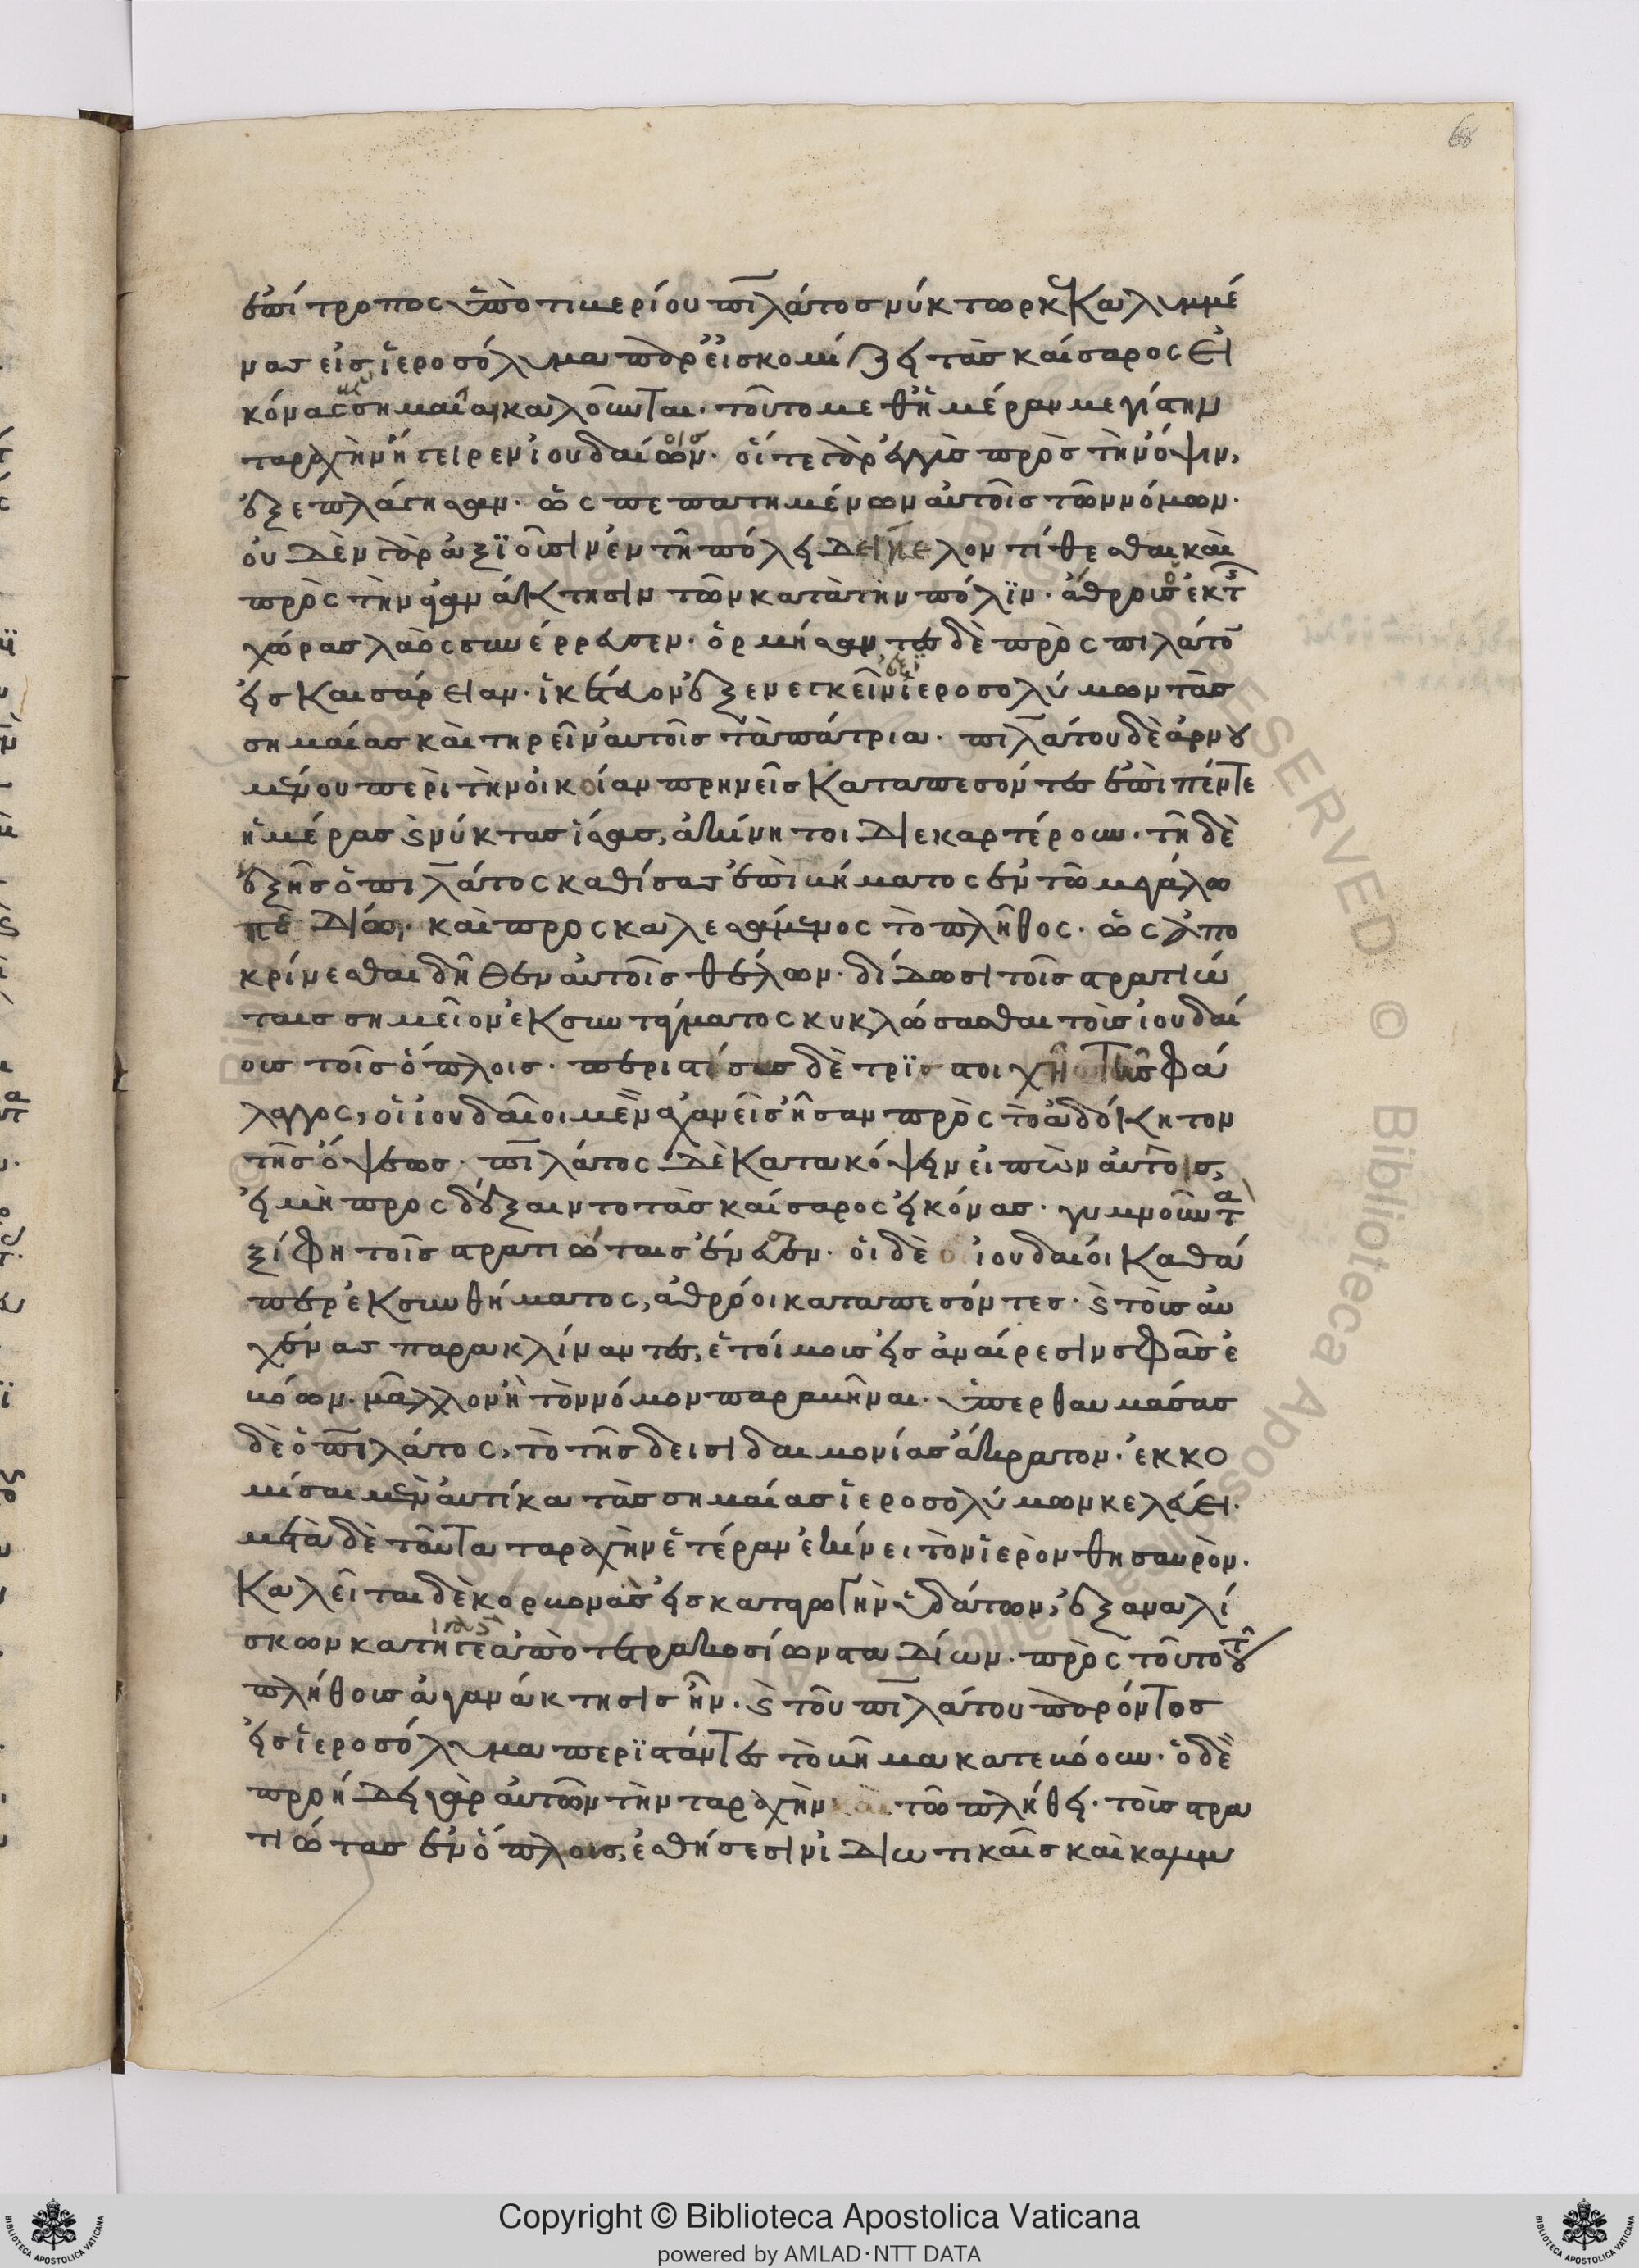 68
ἐπίτροπος ὑπὸ τιβερίου πιλάτος νύκτωρ κεκαλυμμέ
νας εἰς ἱεροσόλυμα παρεισκομίζει τὰς καίσαρος εἰ
κόνας σημαῖαι καλοῦνται. τοῦτο μεθ' ἡμέραν μεγίστην
ταραχὴν ἤγειρεν ἰουδαίων. οἵ τε γὰρ ἐγγὺς πρὸς τὴν ὄψιν,
ἐξεπλάγησαν. ὡς πεπατημένων αὐτοῖς τῶν νόμων.
οὐδὲν γὰρ ἀξιοῦσιν ἐν τῆ πόλει δείκελον τίθεσθαι καὶ
πρὸς τὴν ἀγανάκτησιν τῶν κατὰ τὴν πόλιν. ἄθρους ἐκ τῆς
χώρας λαὸς συνέρρευσεν. ὁρμήσαντες δὲ πρὸς πιλάτον
εἰς καισάρειαν. ἱκέτευον ἐξενεγκεῖν ἐξ ἱεροσολύμων τὰς
σημαίας καὶ τηρεῖν αὐτοῖς τὰ πάτρια. πιλάτου δὲ ἀρνου
μένου περὶ τὴν οἰκίαν πρηνεῖς καταπεσόντες ἐπὶ πέντε
ἡμέρας καὶ νύκτας ἴσας, ἀκίνητοι διεκαρτέρουν. τῆ δὲ
ἑξῆς ὁ πιλάτος καθίσας ἐπὶ βήματος ἐν τῶ μεγάλω
σταδίω. καὶ προσκαλεσάμενος τὸ πλῆθος. ὡς ἀπο
κρίνεσθαι δῆθεν αὐτοῖς θέλων. δίδωσι τοῖς στρατιώ
ταις σημεῖον ἐκ συντάγματος κυκλώσασθαι τοὺς ἰουδαί
ους τοῖς ὅπλοις. περιστάσης δὲ τριστοιχεὶ τῆς φά
λαγγος, οἱ ἰουδαῖοι μὲν ἀχανεῖς ἦσαν πρὸς τὸ ἀδόκητον
τῆς ὄψεως. πιλάτος δὲ κατακόψειν εἰπὼν αὐτοὺς,
εἰ μὴ προσδέξαιντο τὰς καίσαρος εἰκόνας. γυμνοῦν τὰ
ξίφη τοῖς στρατιώταις ἔνευσεν. οἱ δὲ ἰουδαῖοι καθά
περ ἐκ συνθήματος, ἀθρόοι καταπεσόντες. καὶ τοὺς αὐ
χένας παρακλίναντες, ἑτοίμους εἰς ἀναίρεσιν σφᾶς ἐ
βόων. μᾶλλον ἢ τὸν νόμον παραβῆναι. ὑπερθαυμάσας
δὲ ὁ πιλάτος, τὸ τῆς δεισιδαιμονίας ἄκρατον. ἐκκο
μίσαι μὲν αὐτίκα τὰς σημαίας ἱεροσολύμων κελεύει.
μετὰ δὲ ταῦτα ταραχὴν ἑτέραν ἐκίνει τὸν ἱερὸν θησαυρὸν.
καλεῖται δὲ κορβονᾶς εἰς καταγωγὴν ὑδάτων, ἐξαναλί
σκων κατήγε ἀπὸ τετρακοσίων σταδίων. πρὸς τοῦτο τοῦ
πλήθους ἀγανάκτησις ἦν. καὶ τοῦ πιλάτου παρόντος
εἰς ἱεροσόλυμα περιστάντες τὸ βῆμα κατεβόουν. ὁ δὲ
προήδει γὰρ αὐτῶν τὴν ταραχὴν τῶ πλήθει. τοὺς στρα
τιώτας ἐν ὅπλοις, ἐσθήσεσιν ἰδιωτικαῖς
Copyright © Biblioteca Apostolica Vaticana
powered by AMLAD·NTT DATA